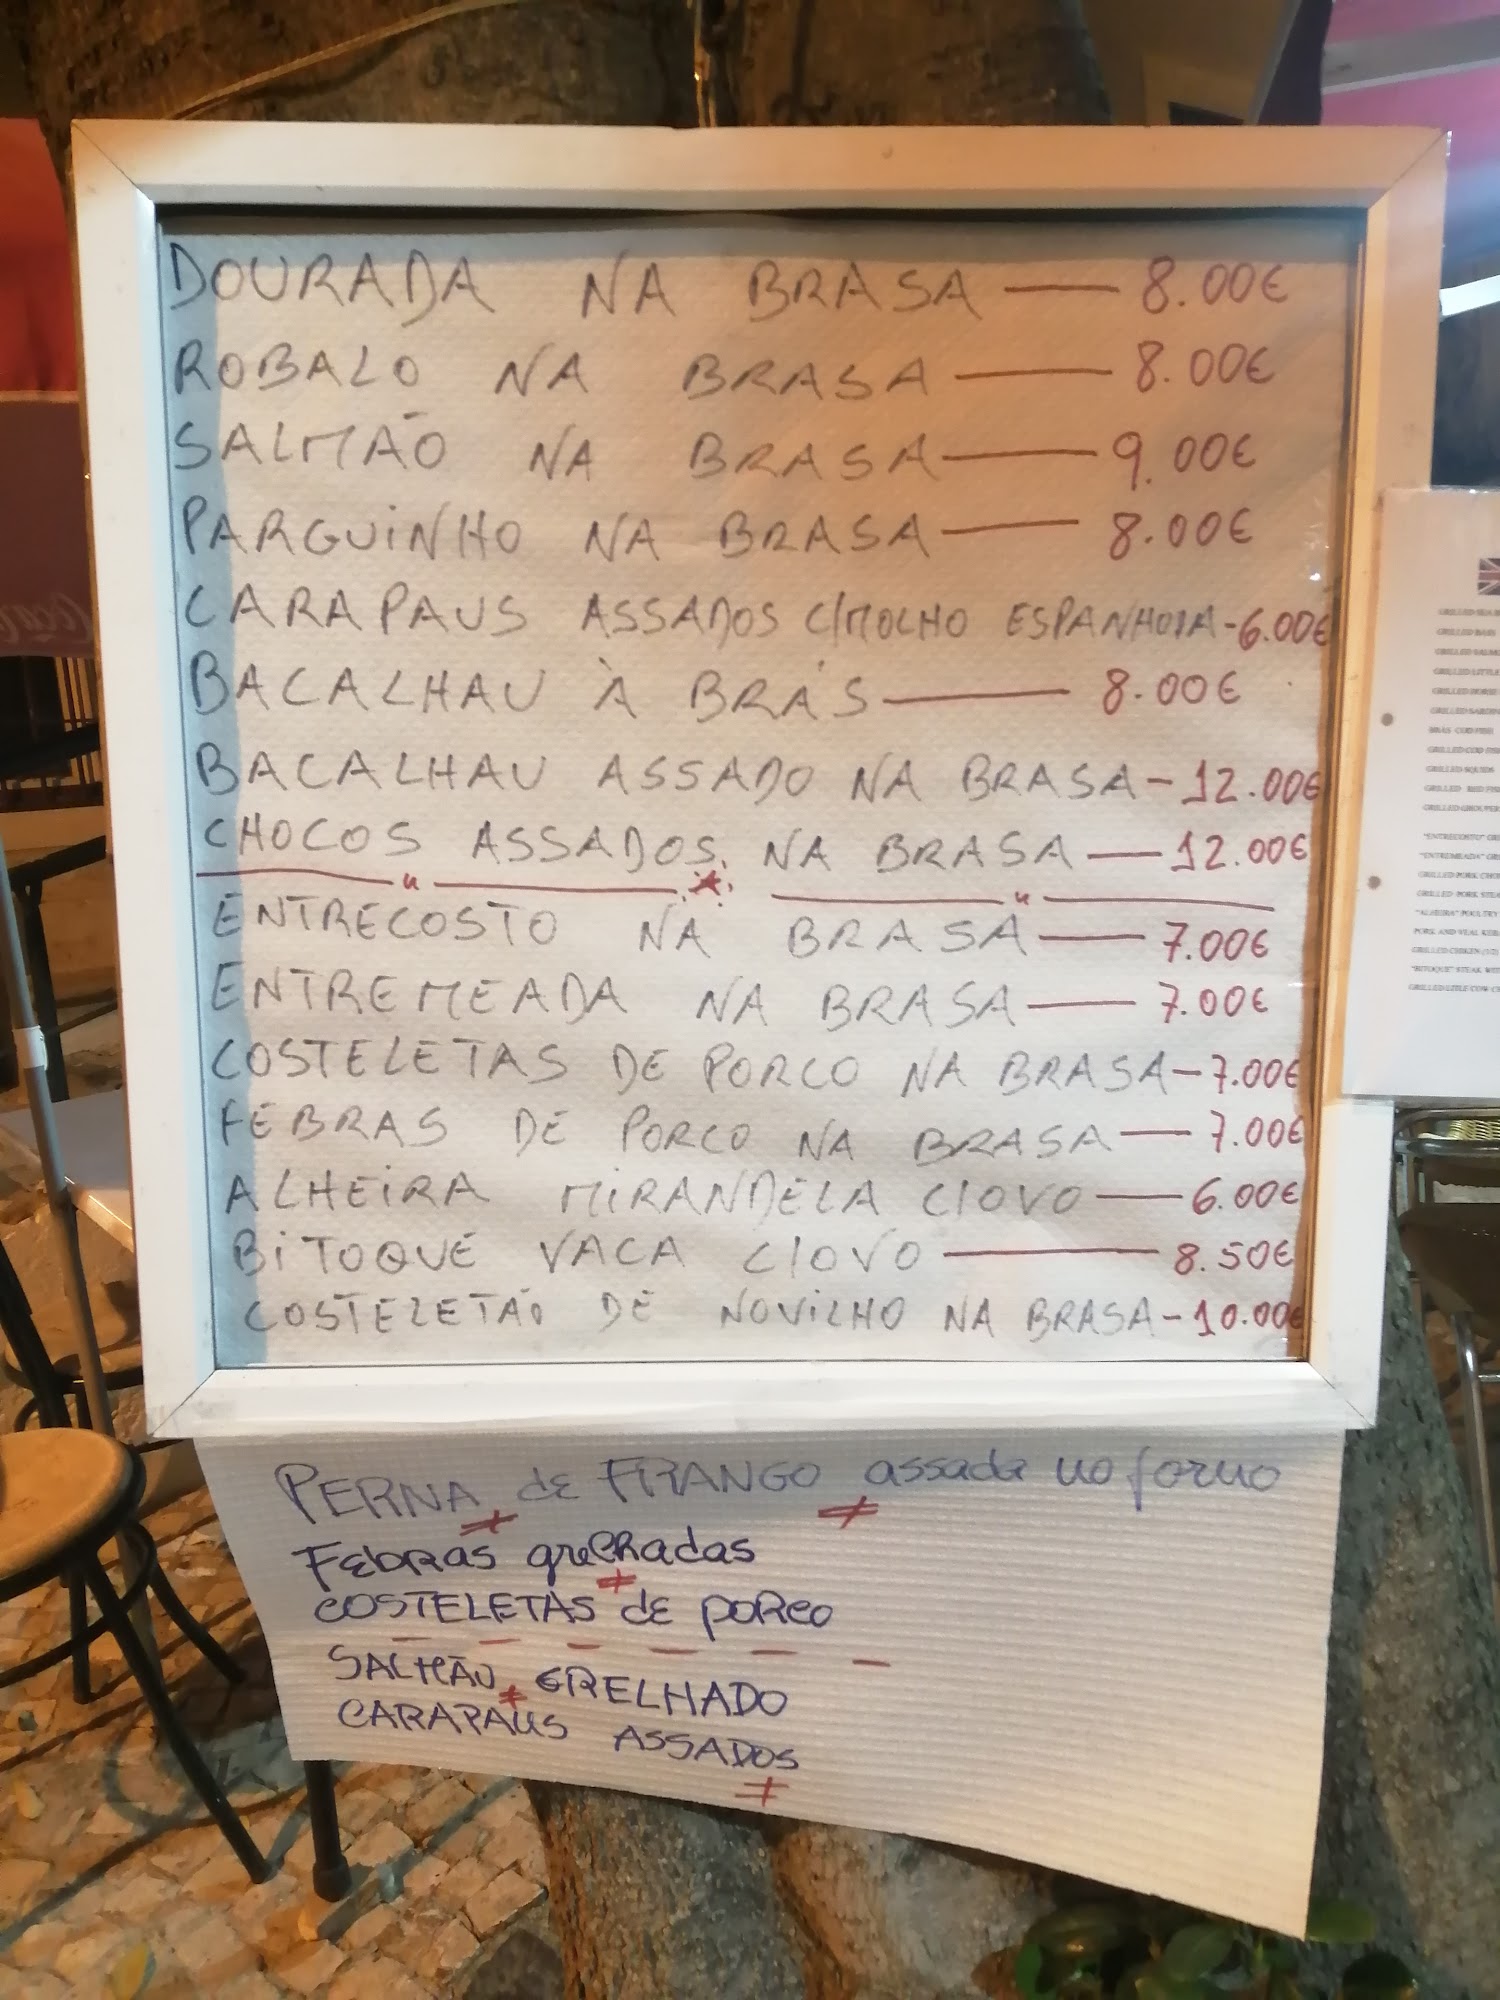 DOURADA NA BRASA — 8.00€
ROBALO NA BRASA — 8.00€
SALMÃO NA BRASA — 9.00€
PARGUINHO NA BRASA — 8.00€
CARAPAUS ASSADOS C/MOLHO ESPANHOLA - 6.00€
BACALHAU À BRÁS — 8.00€
BACALHAU ASSADO NA BRASA - 12.00€
CHOCOS ASSADOS NA BRASA — 12.00€
ENTRECOSTO NA BRASA — 7.00€
ENTREMEADA NA BRASA — 7.00€
COSTELETAS DE PORCO NA BRASA - 7.00€
FEBRAS DE PORCO NA BRASA — 7.00€
ALHEIRA MIRANDELA C/OVO — 6.00€
BITOQUE VACA C/OVO — 8.50€
COSTELETÃO DE NOVILHO NA BRASA - 10.00€
PERNA de FRANGO assada no forno
FEBRAS grelhadas
COSTELETAS de PORCO
SALMÃO GRELHADO
CARAPAUS ASSADOS
GRILLED
GRILLED BASS
GRILLED
GRILLED LITTLE
GRILLED HORSE
GRILLED
BRÁS COD FISH
GRILLED COD
GRILLED SQUIDS
GRILLED RED
GRILLED GROUPER
"ENTRECOSTO"
"ENTREMEADA"
GRILLED PORK
GRILLED PORK
"ALHEIRA" POULTRY
PORK AND VEAL
GRILLED CHIKEN (1/2)
"BITOQUE" STEAK
GRILLED LITLE COW